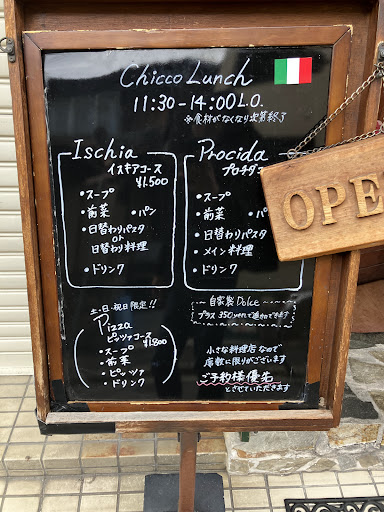 Chicco Lunch
11:30-14:00 L.O.
※食材がなくなり次第終了
Ischia
イスキアコース
¥1.500
・スープ
・前菜 ・パン
・日替わりパスタ
or
日替わり料理
・ドリンク
Procida
プロチダコ
・スープ
・前菜 ・パ
・日替わりパスタ
・メイン料理
・ドリンク
土・日・祝日限定!!
Pizza
ピッツァコース
¥1.800
・スープ
・前菜
・ピッツァ
・ドリンク
自家製 Dolce
プラス350yenで追加できます
小さな料理店なので
席数に限りがございます
ご予約様優先
とさせていただきます
OPE